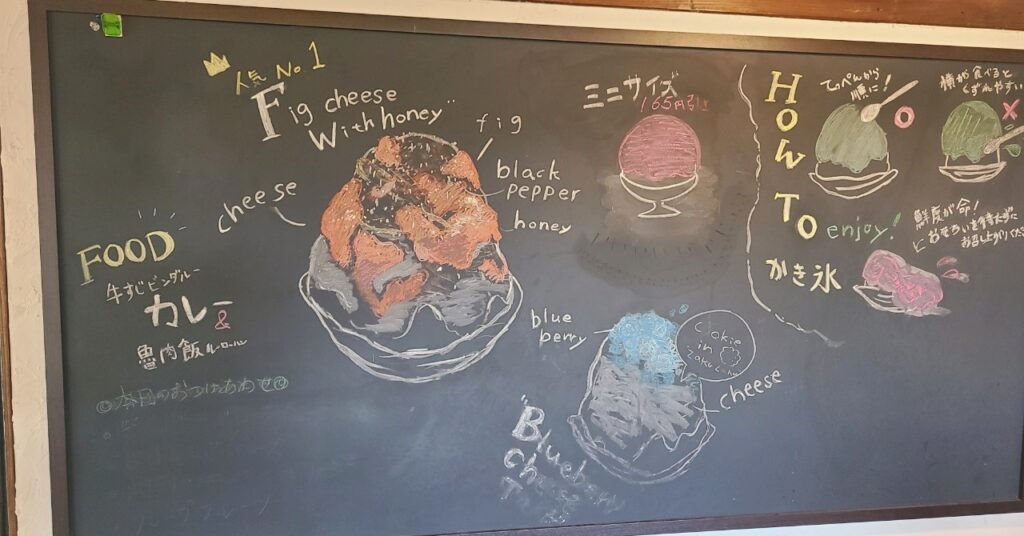 人気 No 1
Fig cheese
With honey
fig
black
pepper
honey
cheese
FOOD
牛すじビンダルー
カレー
&
魯肉飯 ルーローハン
◎本日のおつけあわせ◎
ミニサイズ
165円引き
blue
berry
Cookie
in
cheese
Blueberry
How To
enjoy!
かき氷
てっぺんから
順に!
横から食べると
くずれやすい
鮮度が命!
お召し上がりください